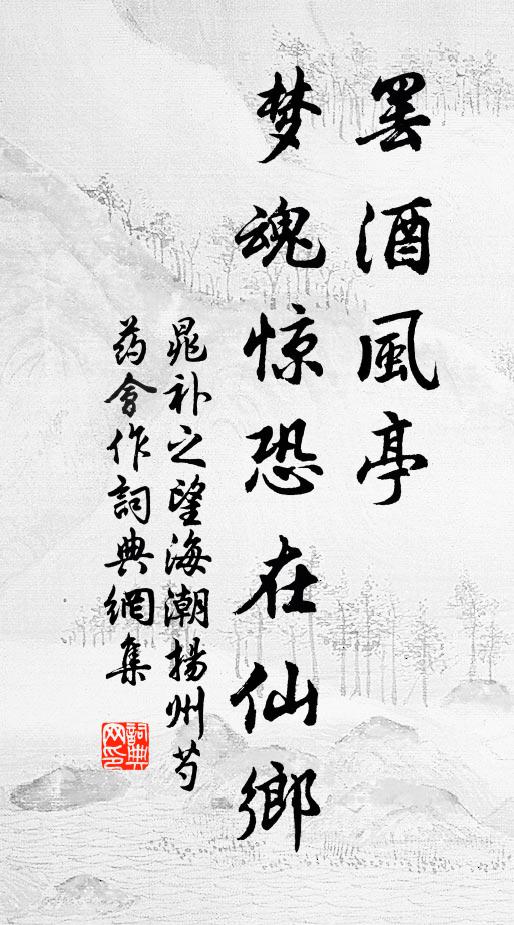 罢酒風亭
梦魂惊恐在仙鄉
晁补之望海潮揚州芍
药會作詞典網集
詞典
网印